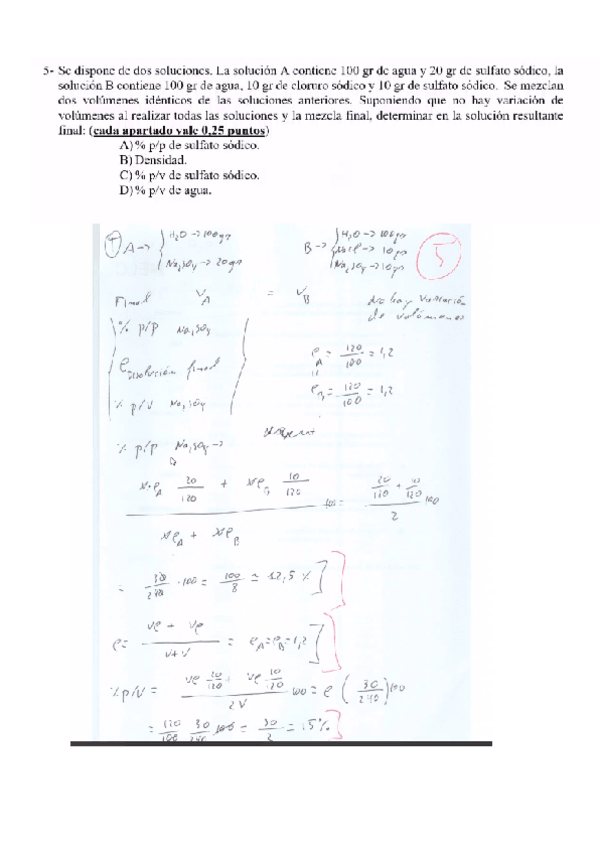 5- Se dispone de dos soluciones. La solución A contiene 100 gr de agua y 20 gr de sulfato sódico, la
solución B contiene 100 gr de agua, 10 gr de cloruro sódico y 10 gr de sulfato sódico. Se mezclan
dos volúmenes idénticos de las soluciones anteriores. Suponiendo que no hay variación de
volúmenes al realizar todas las soluciones y la mezcla final, determinar en la solución resultante
final: (cada apartado vale 0,25 puntos)
A) % p/p de sulfato sódico.
B) Densidad.
C) % p/v de sulfato sódico.
D) % p/v de agua.
A → H2O → 100gr
Na2SO4 → 20gr
B → H2O → 100gr
NaCl → 10gr
Na2SO4 → 10gr
5
Final VA = VB No hay variación
de volúmenes
% p/p Na2SO4
ρA = 120/100 = 1,2
ρDisolución final
ρB = 120/100 = 1,2
% p/v Na2SO4
% p/p Na2SO4 →
20/120 + 10/120 100 = 20/120 + 10/120 100
2
= 30/240 · 100 = 100/8 = 12,5 %
ρ = Vρ + Vρ / V+V = ρA = ρB = 1,2
% p/v = Vρ 20/120 + Vρ 10/120 / 2V 100 = ρ (30/240) 100
= 120/100 30/240 100 = 30/2 = 15%